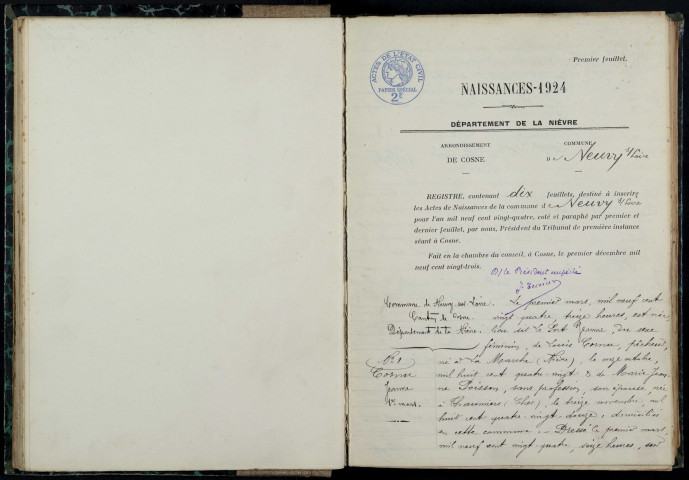 Premier feuillet.
ACTES DE L'ETAT CIVIL
PAPIER SPÉCIAL
2F
NAISSANCES-1924
DÉPARTEMENT DE LA NIÈVRE
ARRONDISSEMENT
DE COSNE
COMMUNE
De Neuvy s/Loire
REGISTRE, contenant dix feuillets, destiné à inscrire
les Actes de Naissances de la commune de Neuvy s/Loire
pour l'an mil neuf cent vingt-quatre, coté et paraphé par premier et
dernier feuillet, par nous, Président du Tribunal de première instance
séant à Cosne.
Fait en la chambre du conseil, à Cosne, le premier décembre mil
neuf cent vingt-trois.
P/ le Président empêché
Commune de Neuvy-sur-Loire.
Canton de Cosne.
Département de la Nièvre.
No 1
Cosnur
1er mars.
Le premier mars, mil neuf cent
vingt quatre, treize heures, est née
lieu dit le Port du sexe
féminin, de Louis pêcheur,
né à La Marche (Nièvre), le onze octobre,
mil huit cent quatre-vingt & de Marie Jean-
ne Poisson, sans profession, son épouse, née
à (Cher), le treize novembre, mil
huit cent quatre-vingt-douze ; domiciliés
en cette commune. - Dressé le premier mars,
mil neuf cent vingt-quatre, seize heures, sur